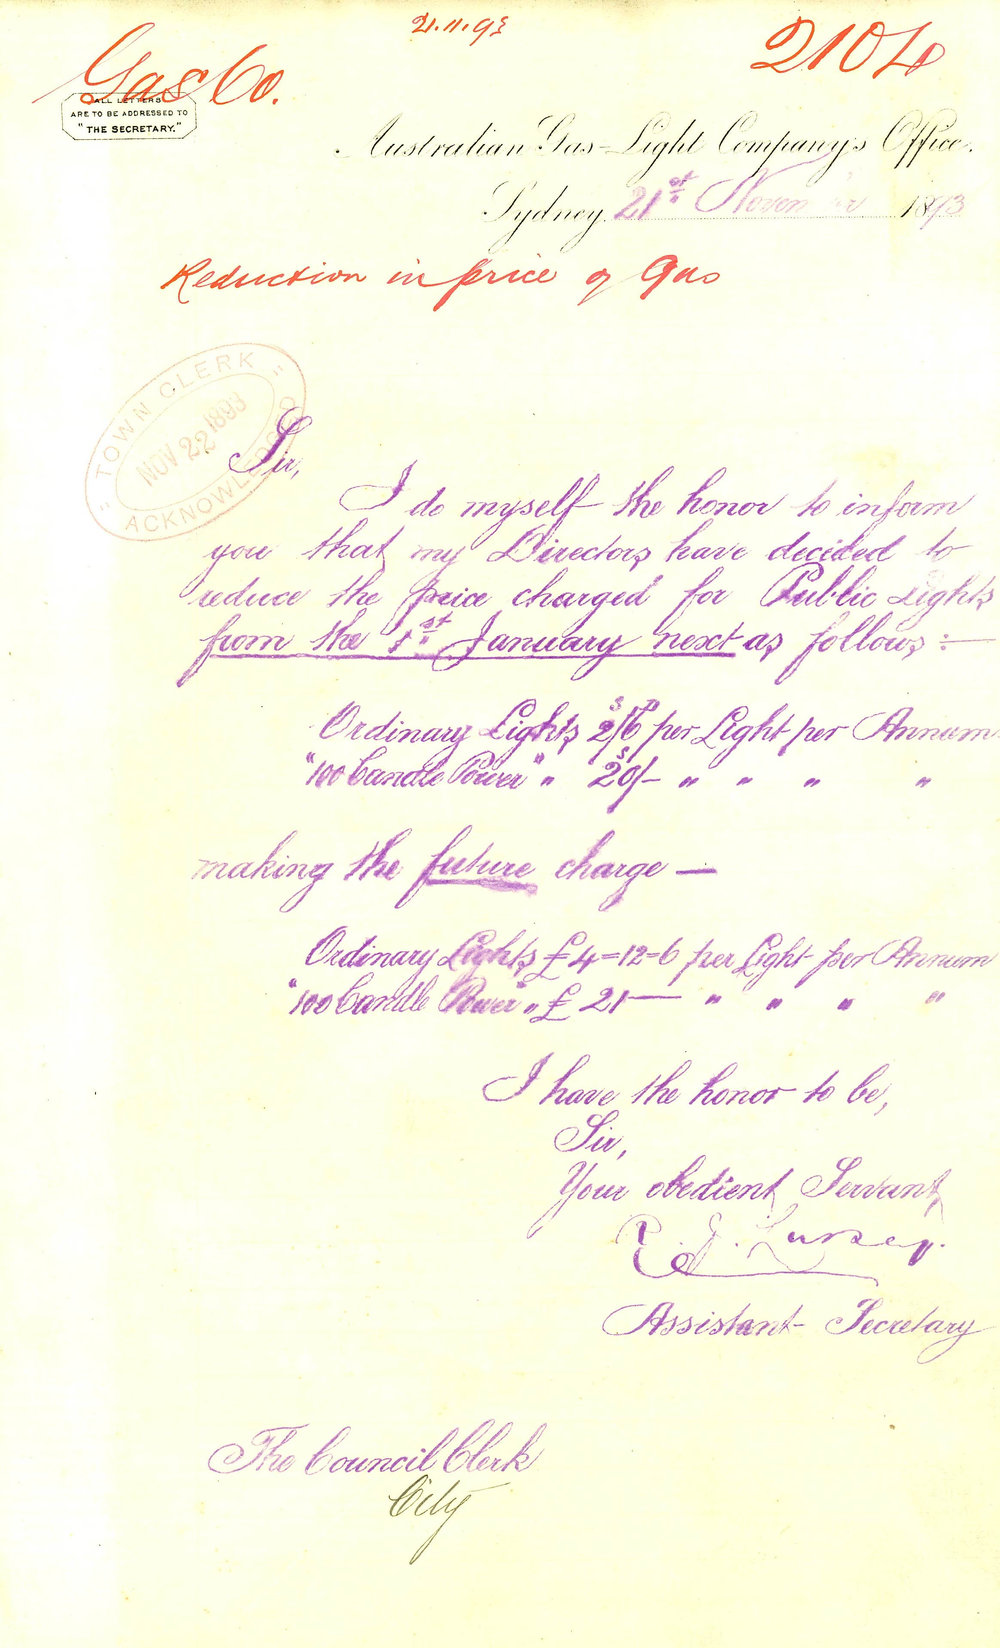 21.11.93
2104
Gas Co.
ALL LETTERS
ARE TO BE ADDRESSED TO
"THE SECRETARY."
Australian Gas-Light Company's Office.
Sydney, 21st November 1893
Reduction in price of Gas
TOWN CLERK
NOV 22 1893
ACKNOWLEDGED
Sir,
I do myself the honor to inform
you that my Directors have decided to
reduce the price charged for Public Lights
from the 1st January next as follows:—
Ordinary Lights 2/6 per Light per Annum
"100 Candle Power" " 20/- " " " "
making the future charge —
Ordinary Lights £4=12=6 per Light per Annum
"100 Candle Power" " £21 — " " " "
I have the honor to be,
Sir,
Your obedient Servant,
Assistant Secretary
The Council Clerk
City